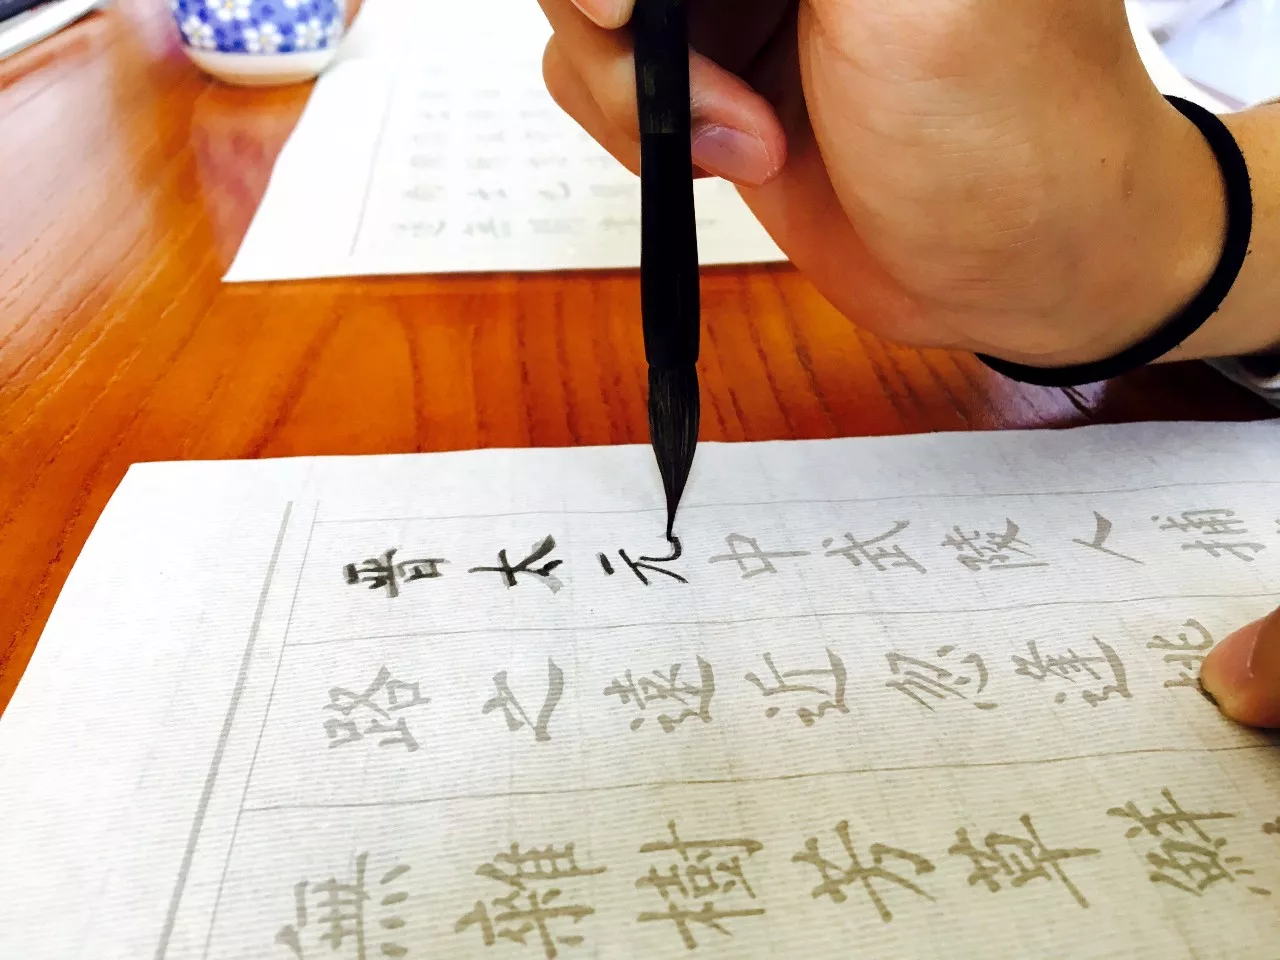 晋太元中武陵人捕
路之遠近忽逢桃
無雜樹芳草鮮